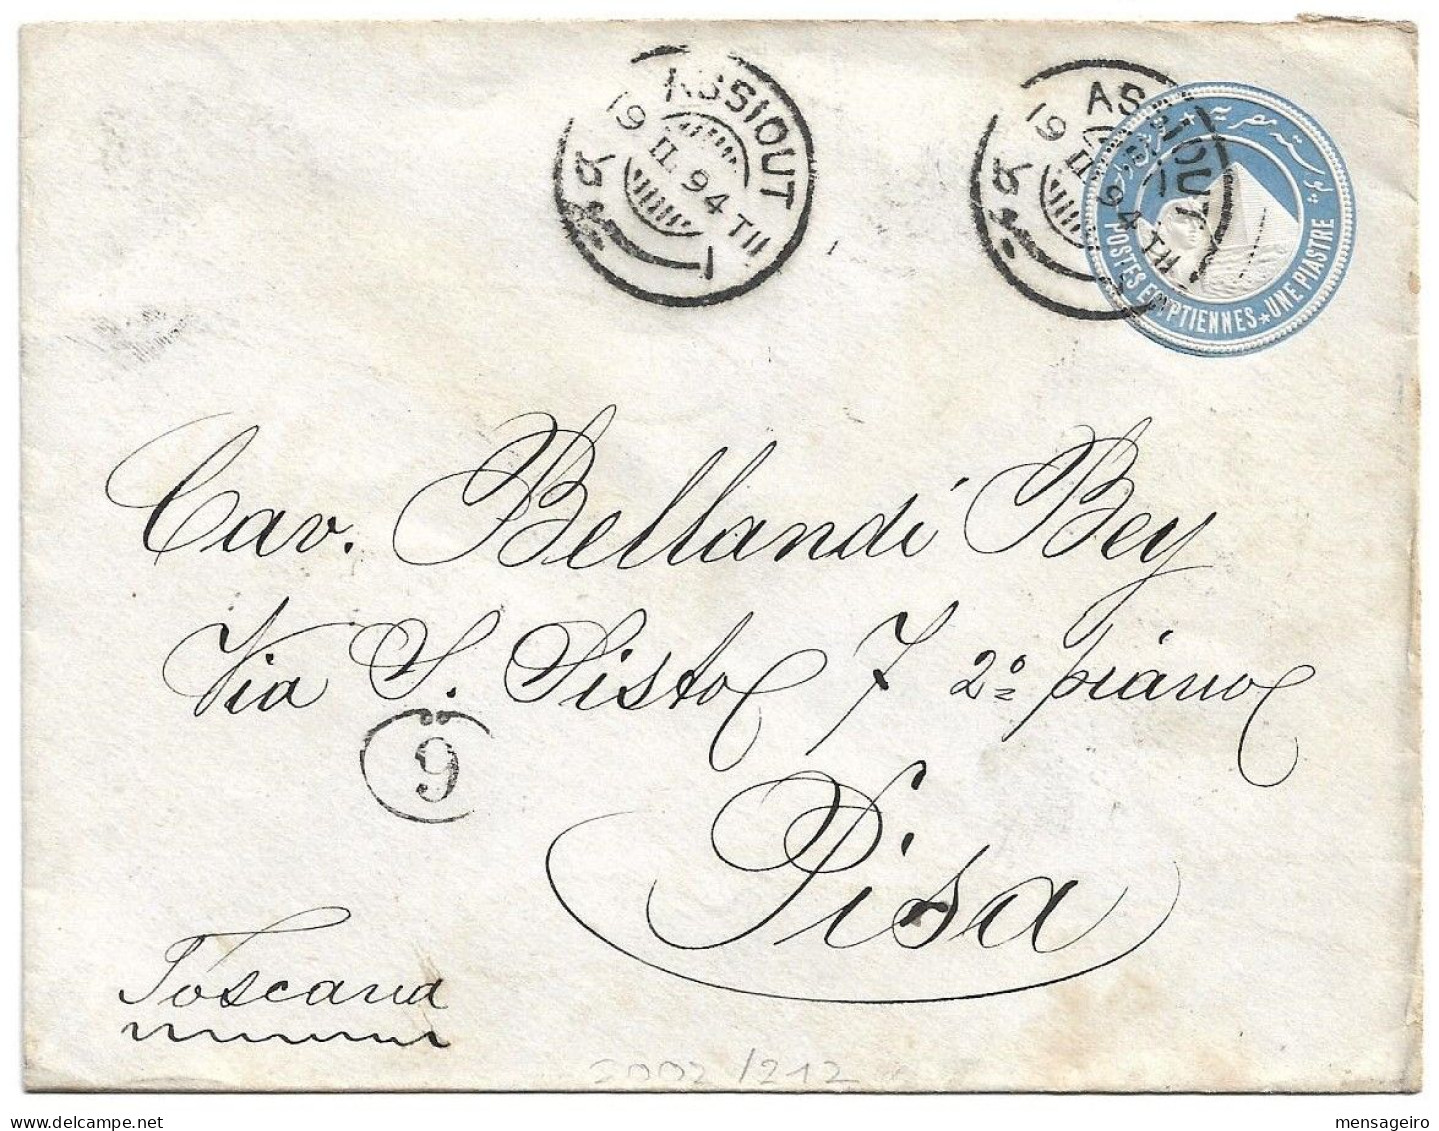 ASSIOUT
19 II. 94 TII
ASSIOUT
19 II 94 TII
POSTES EGYPTIENNES ★ UNE PIASTRE
Cav. Bellandi Bey
Via S. Sisto 7 2º piano
9
Pisa
Toscana
mensageiro